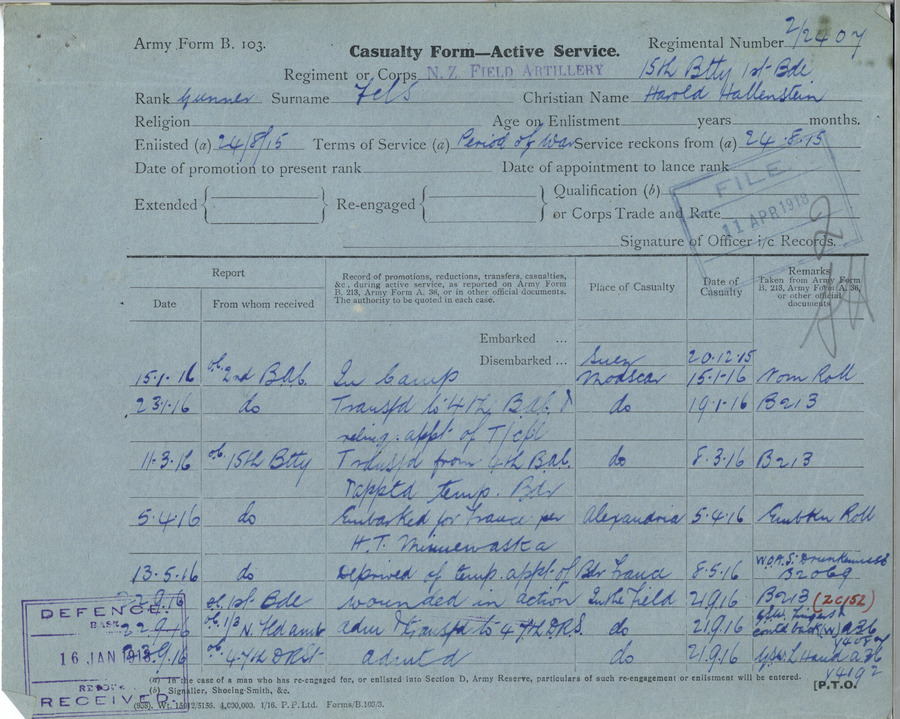 Army Form B. 103.
Casualty Form—Active Service.
Regimental Number 2/2407
Regiment or Corps N. Z. FIELD ARTILLERY 15th Btty 1st Bde.
Rank Gunner Surname Fels Christian Name Harold Hallenstein
Religion Age on Enlistment years months.
Enlisted (a) 24/8/15 Terms of Service (a) Period of War Service reckons from (a) 24-8-15
Date of promotion to present rank Date of appointment to lance rank
Extended Re-engaged Qualification (b)
or Corps Trade and Rate
Signature of Officer i/c Records.
FILE
11 APR 1918
Report
Date From whom received
Record of promotions, reductions, transfers, casualties,
&c., during active service, as reported on Army Form
B. 213, Army Form A. 36, or in other official documents.
The authority to be quoted in each case.
Place of Casualty
Date of
Casualty
Remarks
Taken from Army Form
B. 213, Army Form A. 36,
or other official
documents
Embarked ...
Disembarked ... Suez 20-12-15
15-1-16 o/c 2nd B.A.C. In Camp Moascar 15-1-16 Nom Roll
23-1-16 do Transfd to 4th B.A.C. & do 19-1-16 B213
relinq. appt of T/cpl
11-3-16 o/c 15th Btty Transfd from 4th B.A.C. do 8-3-16 B213
& apptd temp. Bdr
5-4-16 do Embarked for France per Alexandria 5-4-16 Embkn Roll
H.T. Minnewaska
13-5-16 do Deprived of temp. appt of Bdr France 8-5-16 W.O.A.S. Drunkenness
B2069
22.9.16 o/c 1st Bde wounded in action In the Field 21.9.16 B213 (ZC152)
22.9.16 o/c 1/3 N. Fld amb adm & transfd to 47th D.R.S. do 21.9.16 back (W) A36
23.9.16 o/c 47th DRSt admtd do 21.9.16 G.S.W. L Hand A36
DEFENCE
BASE
16 JAN 1918
RECEIVED
(a) In the case of a man who has re-engaged for, or enlisted into Section D, Army Reserve, particulars of such re-engagement or enlistment will be entered.
(b) Signaller, Shoeing-Smith, &c.
[P.T.O.
Forms/B.103/3.